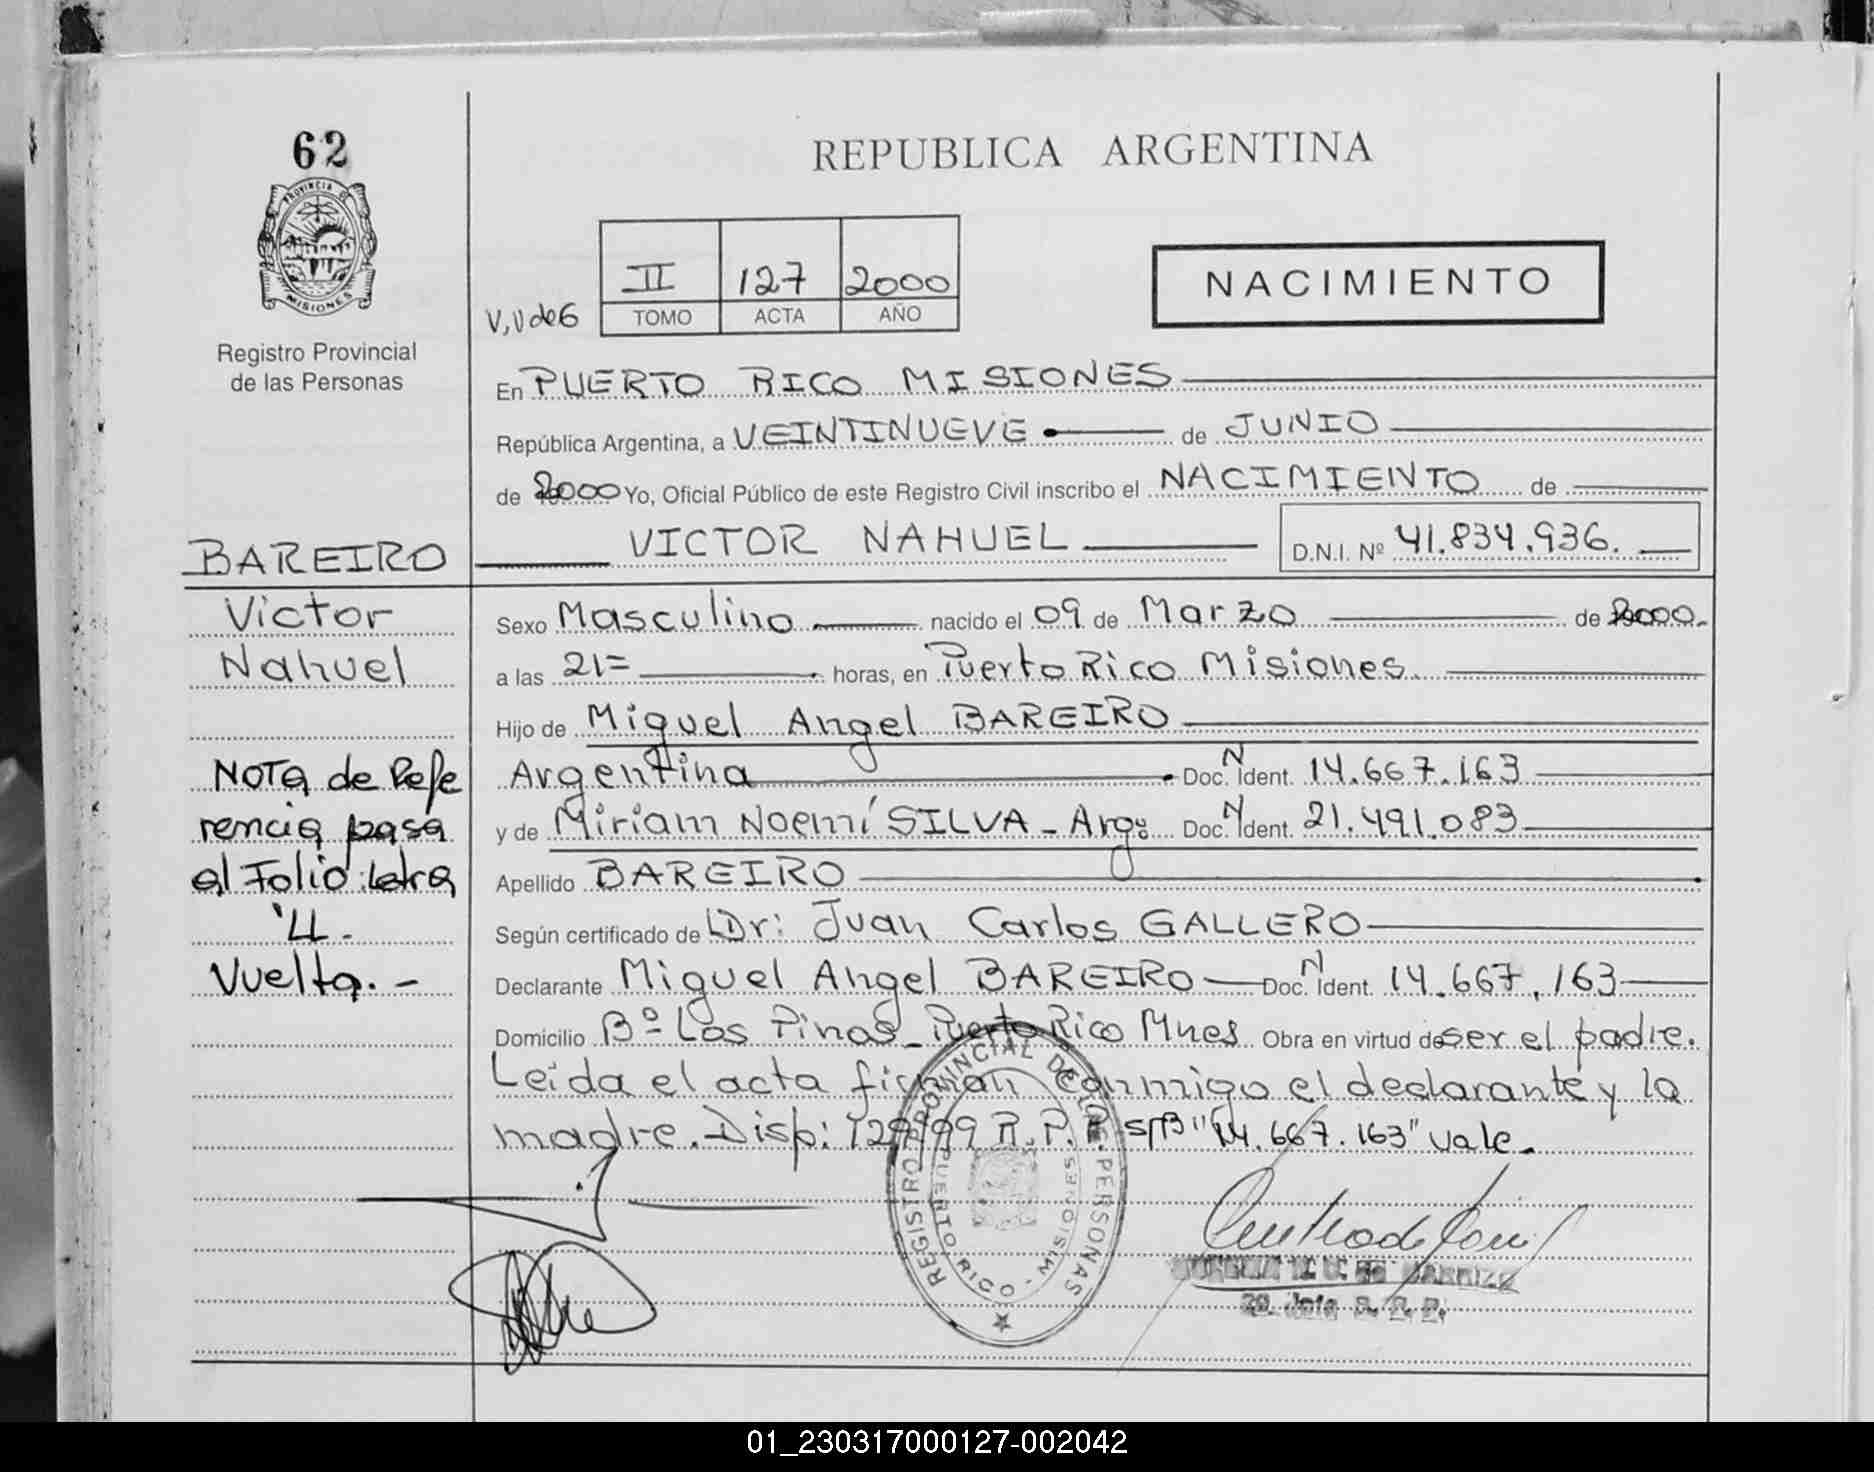 62
REPUBLICA ARGENTINA
PROVINCIA DE
MISIONES
Registro Provincial
de las Personas
II 127 2000
V,V de 6
TOMO ACTA AÑO
NACIMIENTO
En PUERTO RICO MISIONES
República Argentina, a VEINTINUEVE de JUNIO
de 2000 Yo, Oficial Público de este Registro Civil inscribo el NACIMIENTO de
BAREIRO VICTOR NAHUEL D.N.I. Nº 41.834.936.
Victor
Nahuel
Sexo Masculino nacido el 09 de Marzo de 2000.
a las 21= horas, en Puerto Rico Misiones.
Hijo de Miguel Angel BAREIRO
Argentina Doc. N Ident. 14.667.163
y de Miriam Noemí SILVA - Arg: Doc. N Ident. 21.491.083
Apellido BAREIRO
Según certificado de Dr: Juan Carlos GALLERO
Declarante Miguel Angel BAREIRO Doc. N Ident. 14.667.163
Domicilio Bº Los Pinos - Puerto Rico Mnes Obra en virtud de ser el padre.
Leida el acta firman conmigo el declarante y la
madre. Disp: 129/99 R.P.P. S/B "14.667.163" vale.
NOTA de Refe
rencia pasa
al Folio letra
"LL.
Vuelta.-
REGISTRO PROVINCIAL DE LAS PERSONAS
PUERTO RICO - MISIONES
2o. Jefe R. P. P.
01_230317000127-002042